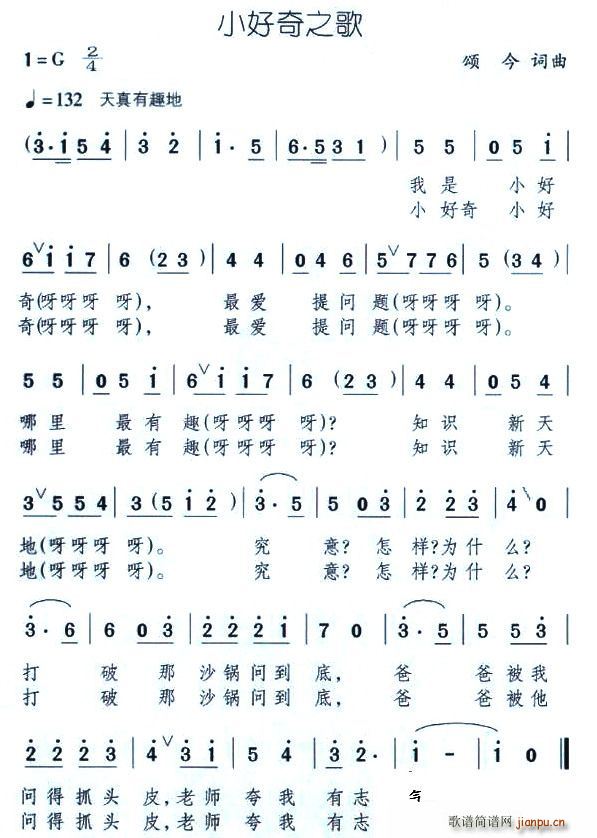 小好奇之歌
1=G 2/4
颂 今 词曲
♩=132 天真有趣地
(3·1 5 4 | 3 2 | 1·5 | 6·5 3 1) | 5 5 | 0 5 1 |
我是 小好
小好奇 小好
6 ∨ 1 1 7 | 6 (2 3) | 4 4 | 0 4 6 | 5 ∨ 7 7 6 | 5 (3 4) |
奇(呀呀呀 呀), 最爱 提问 题(呀呀呀 呀)。
奇(呀呀呀 呀), 最爱 提问 题(呀呀呀 呀)。
5 5 | 0 5 1 | 6 ∨ 1 1 7 | 6 (2 3) | 4 4 | 0 5 4 |
哪里 最有 趣(呀呀呀 呀)? 知识 新天
哪里 最有 趣(呀呀呀 呀)? 知识 新天
3 ∨ 5 5 4 | 3 (5 1 2) | 3·5 | 5 0 3 | 2 2 3 | 4 ∨ 0 |
地(呀呀呀 呀)。 究 意? 怎样?为什么?
地(呀呀呀 呀)。 究 意? 怎样?为什么?
3·6 | 6 0 3 | 2 2 2 1 | 7 0 | 3·5 | 5 5 3 |
打 破那沙锅问到底,爸 爸被我
打 破那沙锅问到底,爸 爸被他
2 2 2 3 | 4 ∨ 3 1 | 5 4 | 5·2 | 1 - | 1 0 ‖
问得抓头 皮,老师 夸我 有志
问得抓头 皮,老师 夸我 有志
歌谱简谱网
jianpu.cn